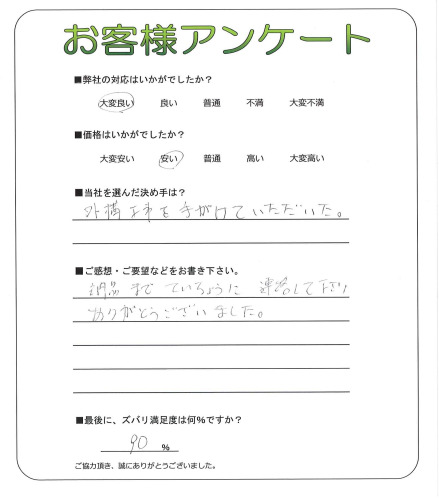 お客様アンケート
■弊社の対応はいかがでしたか？
大変良い 良い 普通 不満 大変不満
■価格はいかがでしたか？
大変安い 安い 普通 高い 大変高い
■当社を選んだ決め手は？
外構工事を手がけていただいた。
■ご感想・ご要望などをお書き下さい。
納品までていちょうに連絡して下さり
ありがとうございました。
■最後に、ズバリ満足度は何％ですか？
90 ％
ご協力頂き、誠にありがとうございました。